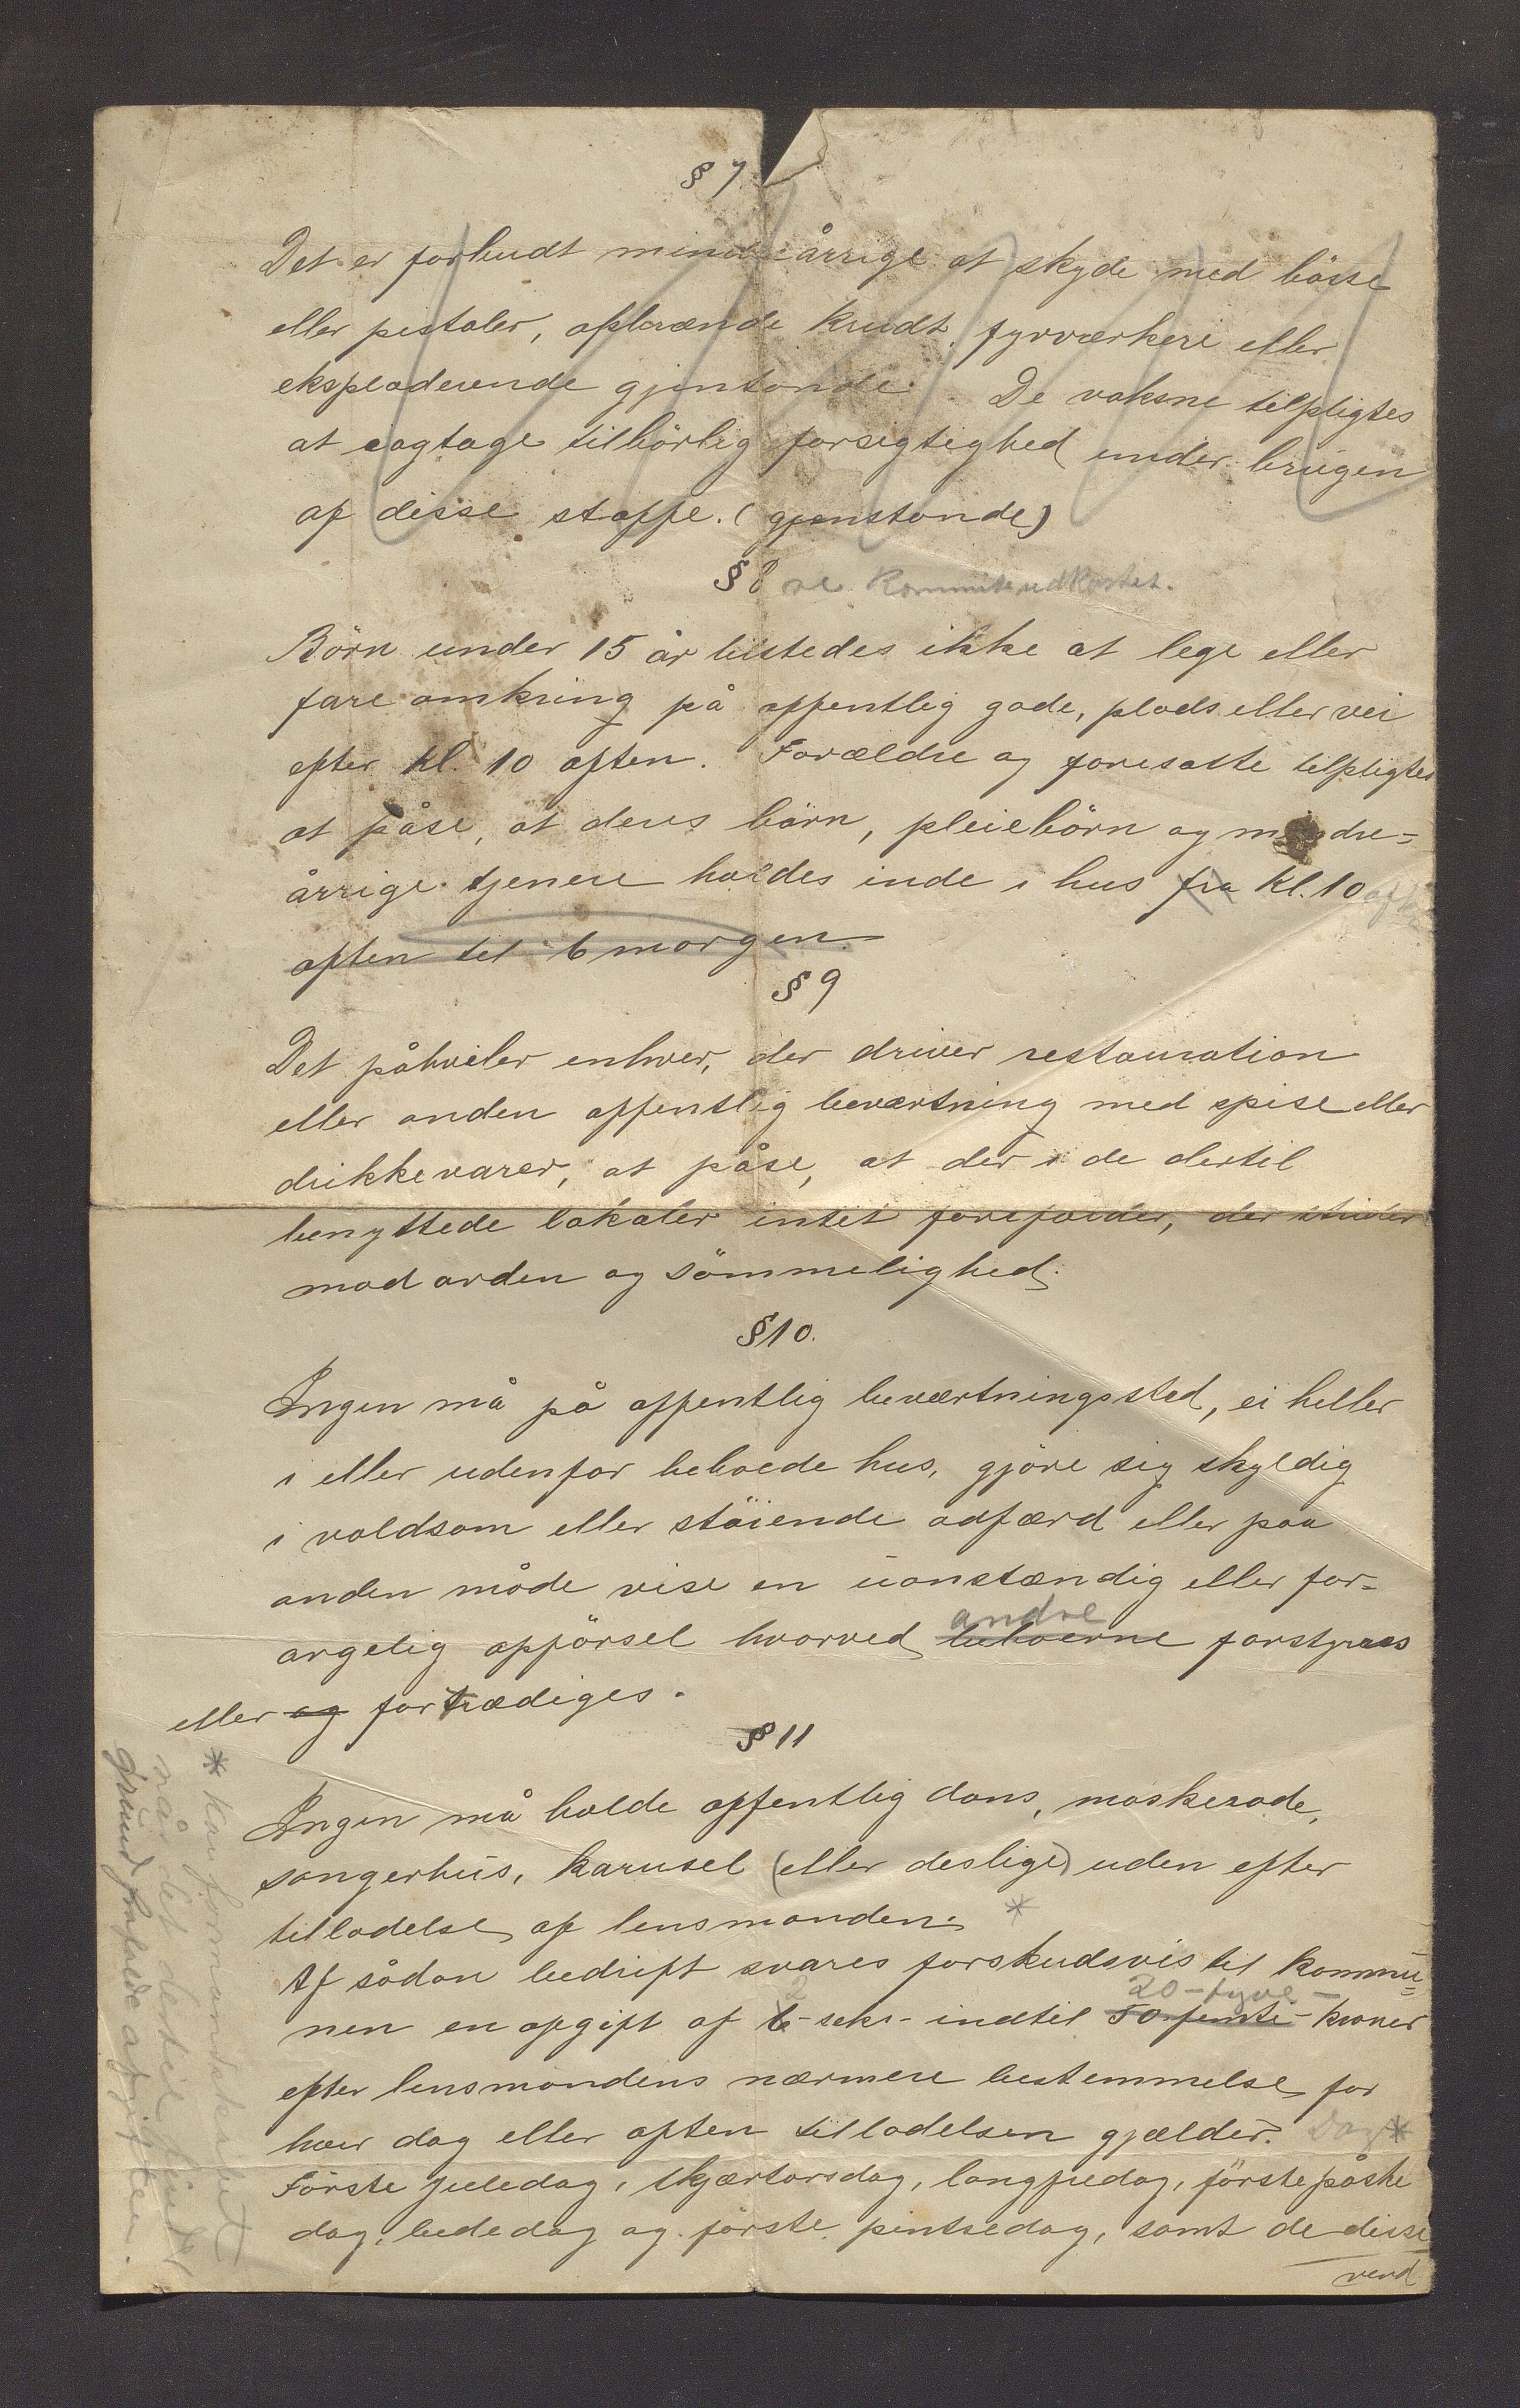 § 7
Det er forbudt mindreårrige at skyde med bösse
eller pistoler, opbrænde krudt, fyrværkeri eller
eksploderende gjenstande. De voksne tilpligtes
at iagtage tilbörlig forsigtighed under brugen
af disse stoffe. (gjenstande)
§ 8 se Kommiteudkastet.
Börn under 15 år tilstedes ikke at lege eller
fare omkring på offentlig gade, plads eller vei
efter kl. 10 aften. Forældre og foresatte tilpligtes
at påse, at deres börn, pleiebörn og mindre=
årrige tjenere holdes inde i hus fra kl. 10 aft
aften til 6 morgen.
§ 9
Det påhviler enhver, der driver restauration
eller anden offentlig beværtning med spise eller
drikkevarer, at påse, at der i de dertil
benyttede lokaler intet forefalder, der strider
mod orden og sömmelighed.
§ 10.
Ingen må på offentlig beværtningssted, ei heller
i eller udenfor beboede hus, gjöre sig skyldig
i voldsom eller stöiende adfærd eller paa
anden måde vise en uanstændig eller for=
andre
argelig opförsel hvorved beboerne forstyrres
eller og fortrædiges.
§ 11
Ingen må holde offentlig dans, maskerade,
sangerhus, karusel (eller deslige) uden efter
tilladelse af lensmanden. *
Af sådan bedrift svares forskudsvis til kommu=
2 20 - tyve -
nen en afgift af 6 - seks - indtil 50 femti - kroner
efter lensmandens nærmere bestemmelse for
hver dag eller aften tilladelsen gjælder. Dog *
Förste juledag, skjærtorsdag, langfredag, förste påske
dag, bededag og förste pintsedag, samt de disse
vend
* kan formandskabet
når det dertil finder
grund frafalde afgiften.